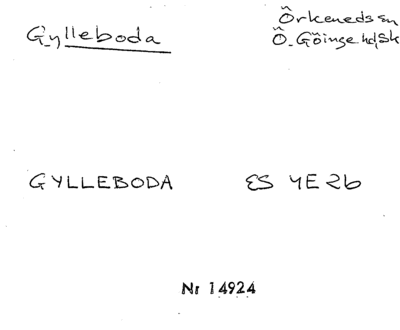 Gylleboda
Örkeneds sn
Ö. Göinge hd, Sk
GYLLEBODA ES 4E2b
Nr 14924